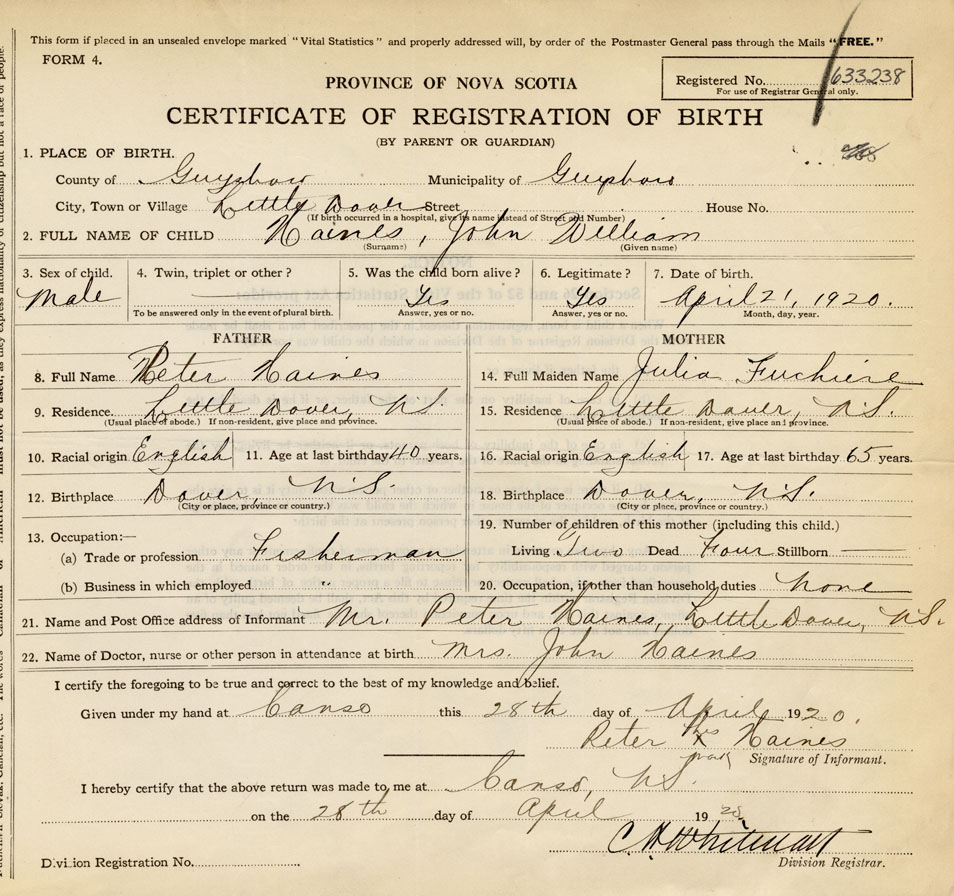 This form if placed in an unsealed envelope marked "Vital Statistics" and properly addressed will, by order of the Postmaster General pass through the Mails "FREE."
FORM 4.
Registered No. 633238
For use of Registrar General only.
PROVINCE OF NOVA SCOTIA
CERTIFICATE OF REGISTRATION OF BIRTH
(BY PARENT OR GUARDIAN)
1. PLACE OF BIRTH.
County of Guysboro Municipality of Guysboro
City, Town or Village Little Dover Street House No.
(If birth occurred in a hospital, give its name instead of Street and Number)
2. FULL NAME OF CHILD Haines, John William
(Surname) (Given name)
3. Sex of child. 4. Twin, triplet or other? 5. Was the child born alive? 6. Legitimate? 7. Date of birth.
Male Yes Yes April 21, 1920.
To be answered only in the event of plural birth. Answer, yes or no. Answer, yes or no. Month, day, year.
FATHER MOTHER
8. Full Name Peter Haines 14. Full Maiden Name Julia
9. Residence. Little Dover, N.S. 15. Residence Little Dover, N.S.
(Usual place of abode.) If non-resident, give place and province. (Usual place of abode.) If non-resident, give place and province.
10. Racial origin English 11. Age at last birthday 40 years. 16. Racial origin English 17. Age at last birthday 65 years.
12. Birthplace Dover, N.S. 18. Birthplace Dover, N.S.
(City or place, province or country.) (City or place, province or country.)
13. Occupation:— 19. Number of children of this mother (including this child.)
(a) Trade or profession Fisherman Living Two Dead Four Stillborn
(b) Business in which employed " 20. Occupation, if other than household duties None
21. Name and Post Office address of Informant Mr. Peter Haines, Little Dover, N.S.
22. Name of Doctor, nurse or other person in attendance at birth Mrs. John Haines
I certify the foregoing to be true and correct to the best of my knowledge and belief.
Given under my hand at Canso this 28th day of April 1920.
Peter his X Haines
mark Signature of Informant.
I hereby certify that the above return was made to me at Canso, N.S.
on the 28th day of April 19 20
Division Registrar.
Division Registration No.